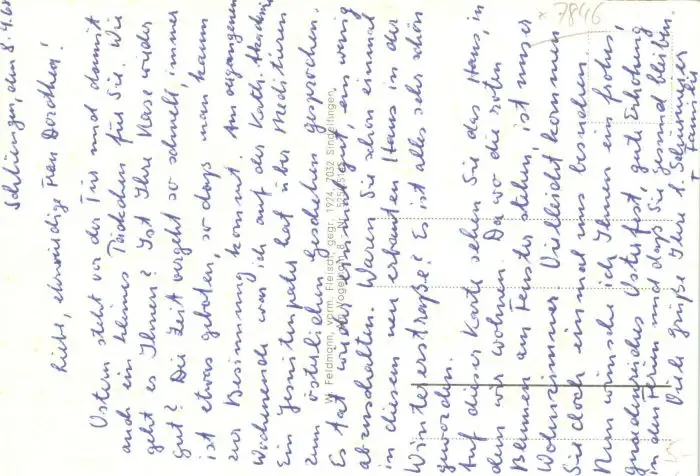 Schliengen, den 8.4.68
Liebe, ehrwürdige Frau Dorothea!
Ostern steht vor der Tür und damit
auch ein kleines Päckchen für Sie. Wie
geht es Ihnen? Ist Ihre Nase wieder
gut? Die Zeit vergeht so schnell, immer
ist etwas geboten, so dass man kaum
zur Besinnung kommt. Am vergangenen
Wochenende war ich auf der Kath. Akademie
Ein Jesuitenpater hat über Meditation
zum österlichen Geschehen gesprochen.
Es tat wieder gut, ein wenig
abzuschalten. Waren Sie schon einmal
in diesem neu erbauten Haus in der
Wintererstraße? Es ist alles sehr schön
geworden.
Auf dieser Karte sehen Sie das Haus, in
dem wir wohnen. Da wo die roten
Blumen am Fenster stehen, ist unser
Wohnzimmer. Vielleicht kommen
Sie doch einmal uns besuchen.
Nun wünsche ich Ihnen ein frohes,
gnadenreiches Osterfest, gute Erholung
in den Ferien und dass Sie gesund bleiben.
Viele Grüße Ihre
W. Feldmann, vorm. Fleisch, gegr. 1924, 7032 Sindelfingen,
Vogelhain 8 - Nr.
* 7846